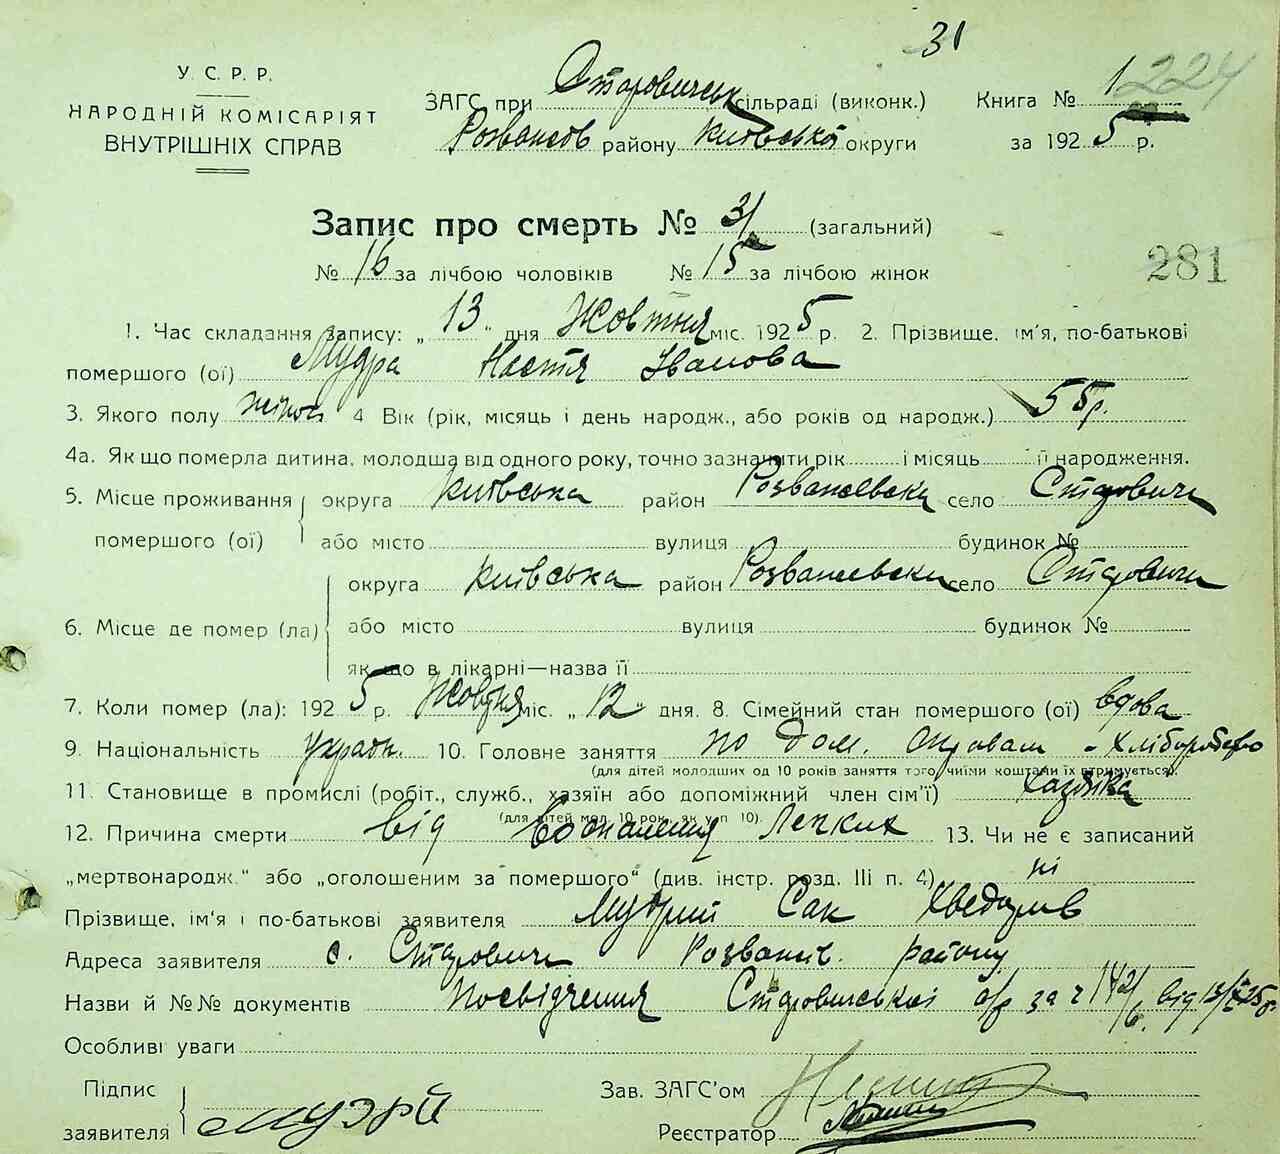 31
У. С. Р. Р.
НАРОДНІЙ КОМІСАРІЯТ
ВНУТРІШНІХ СПРАВ
ЗАГС при Старовичськ сільраді (виконк.)
Розважів району Київської округи
Книга № 1 224
за 1925 р.
Запис про смерть № 31 (загальний)
№ 16 за лічбою чоловіків № 15 за лічбою жінок
281
1. Час складання запису: „13" дня Жовтня міс. 1925 р. 2. Прізвище, ім'я, по-батькові
помершого (ої) Мудра Настя Іванова
3. Якого полу жіноч 4 Вік (рік, місяць і день народж., або років од народж.) 55 р.
4а. Як що померла дитина, молодша від одного року, точно зазначити рік і місяць її народження.
5. Місце проживання округа Київська район Розважевськ село Старовичи
помершого (ої) або місто вулиця будинок №
округа Київська район Розважевськи село Старовичи
6. Місце де помер (ла) або місто вулиця будинок №
як що в лікарні—назва її
7. Коли помер (ла): 1925 р. Жовтня міс. „12" дня. 8. Сімейний стан помершого (ої) вдова
9. Національність Україн. 10. Головне заняття по дом. справам - хліборобство
(для дітей молодших од 10 років заняття того чиїми коштами їх втримується).
11. Становище в промислі (робіт., служб., хазяїн або допоміжний член сім'ї) хазяйка
(для дітей мол. 10 рок. як у п 10).
12. Причина смерти від воспаления Легких 13. Чи не є записаний
„мертвонародж." або „оголошеним за помершого" (див. інстр. розд. III п. 4) ні
Прізвище, ім'я і по-батькові заявителя Мудрий Сак Хведорів
Адреса заявителя с. Старовичи Розважів. району
Назви й №№ документів Посвідчення Старовиської с/р за ч 142/6 від 13/X 25 р.
Особливі уваги
Підпис
заявителя Мудрй
Зав. ЗАГС'ом
Реєстратор